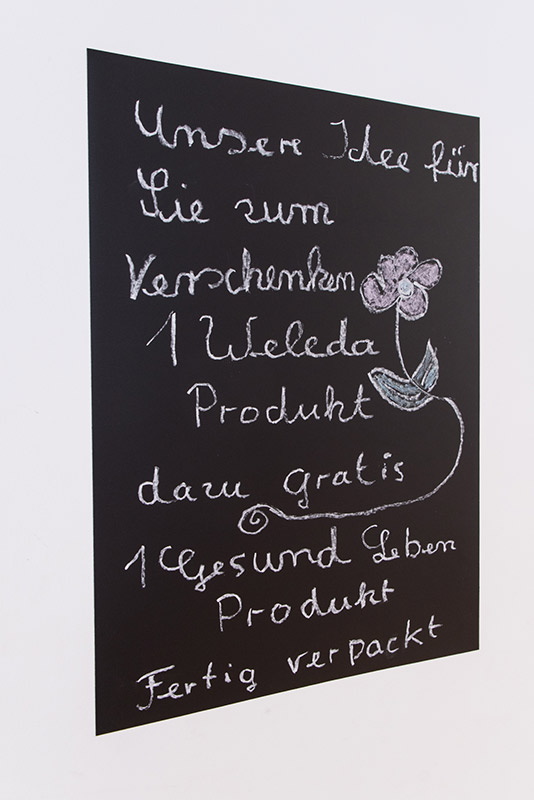 Unsere Idee für
Sie zum
Verschenken
1 Weleda
Produkt
dazu gratis
1 Gesund Leben
Produkt
Fertig verpackt